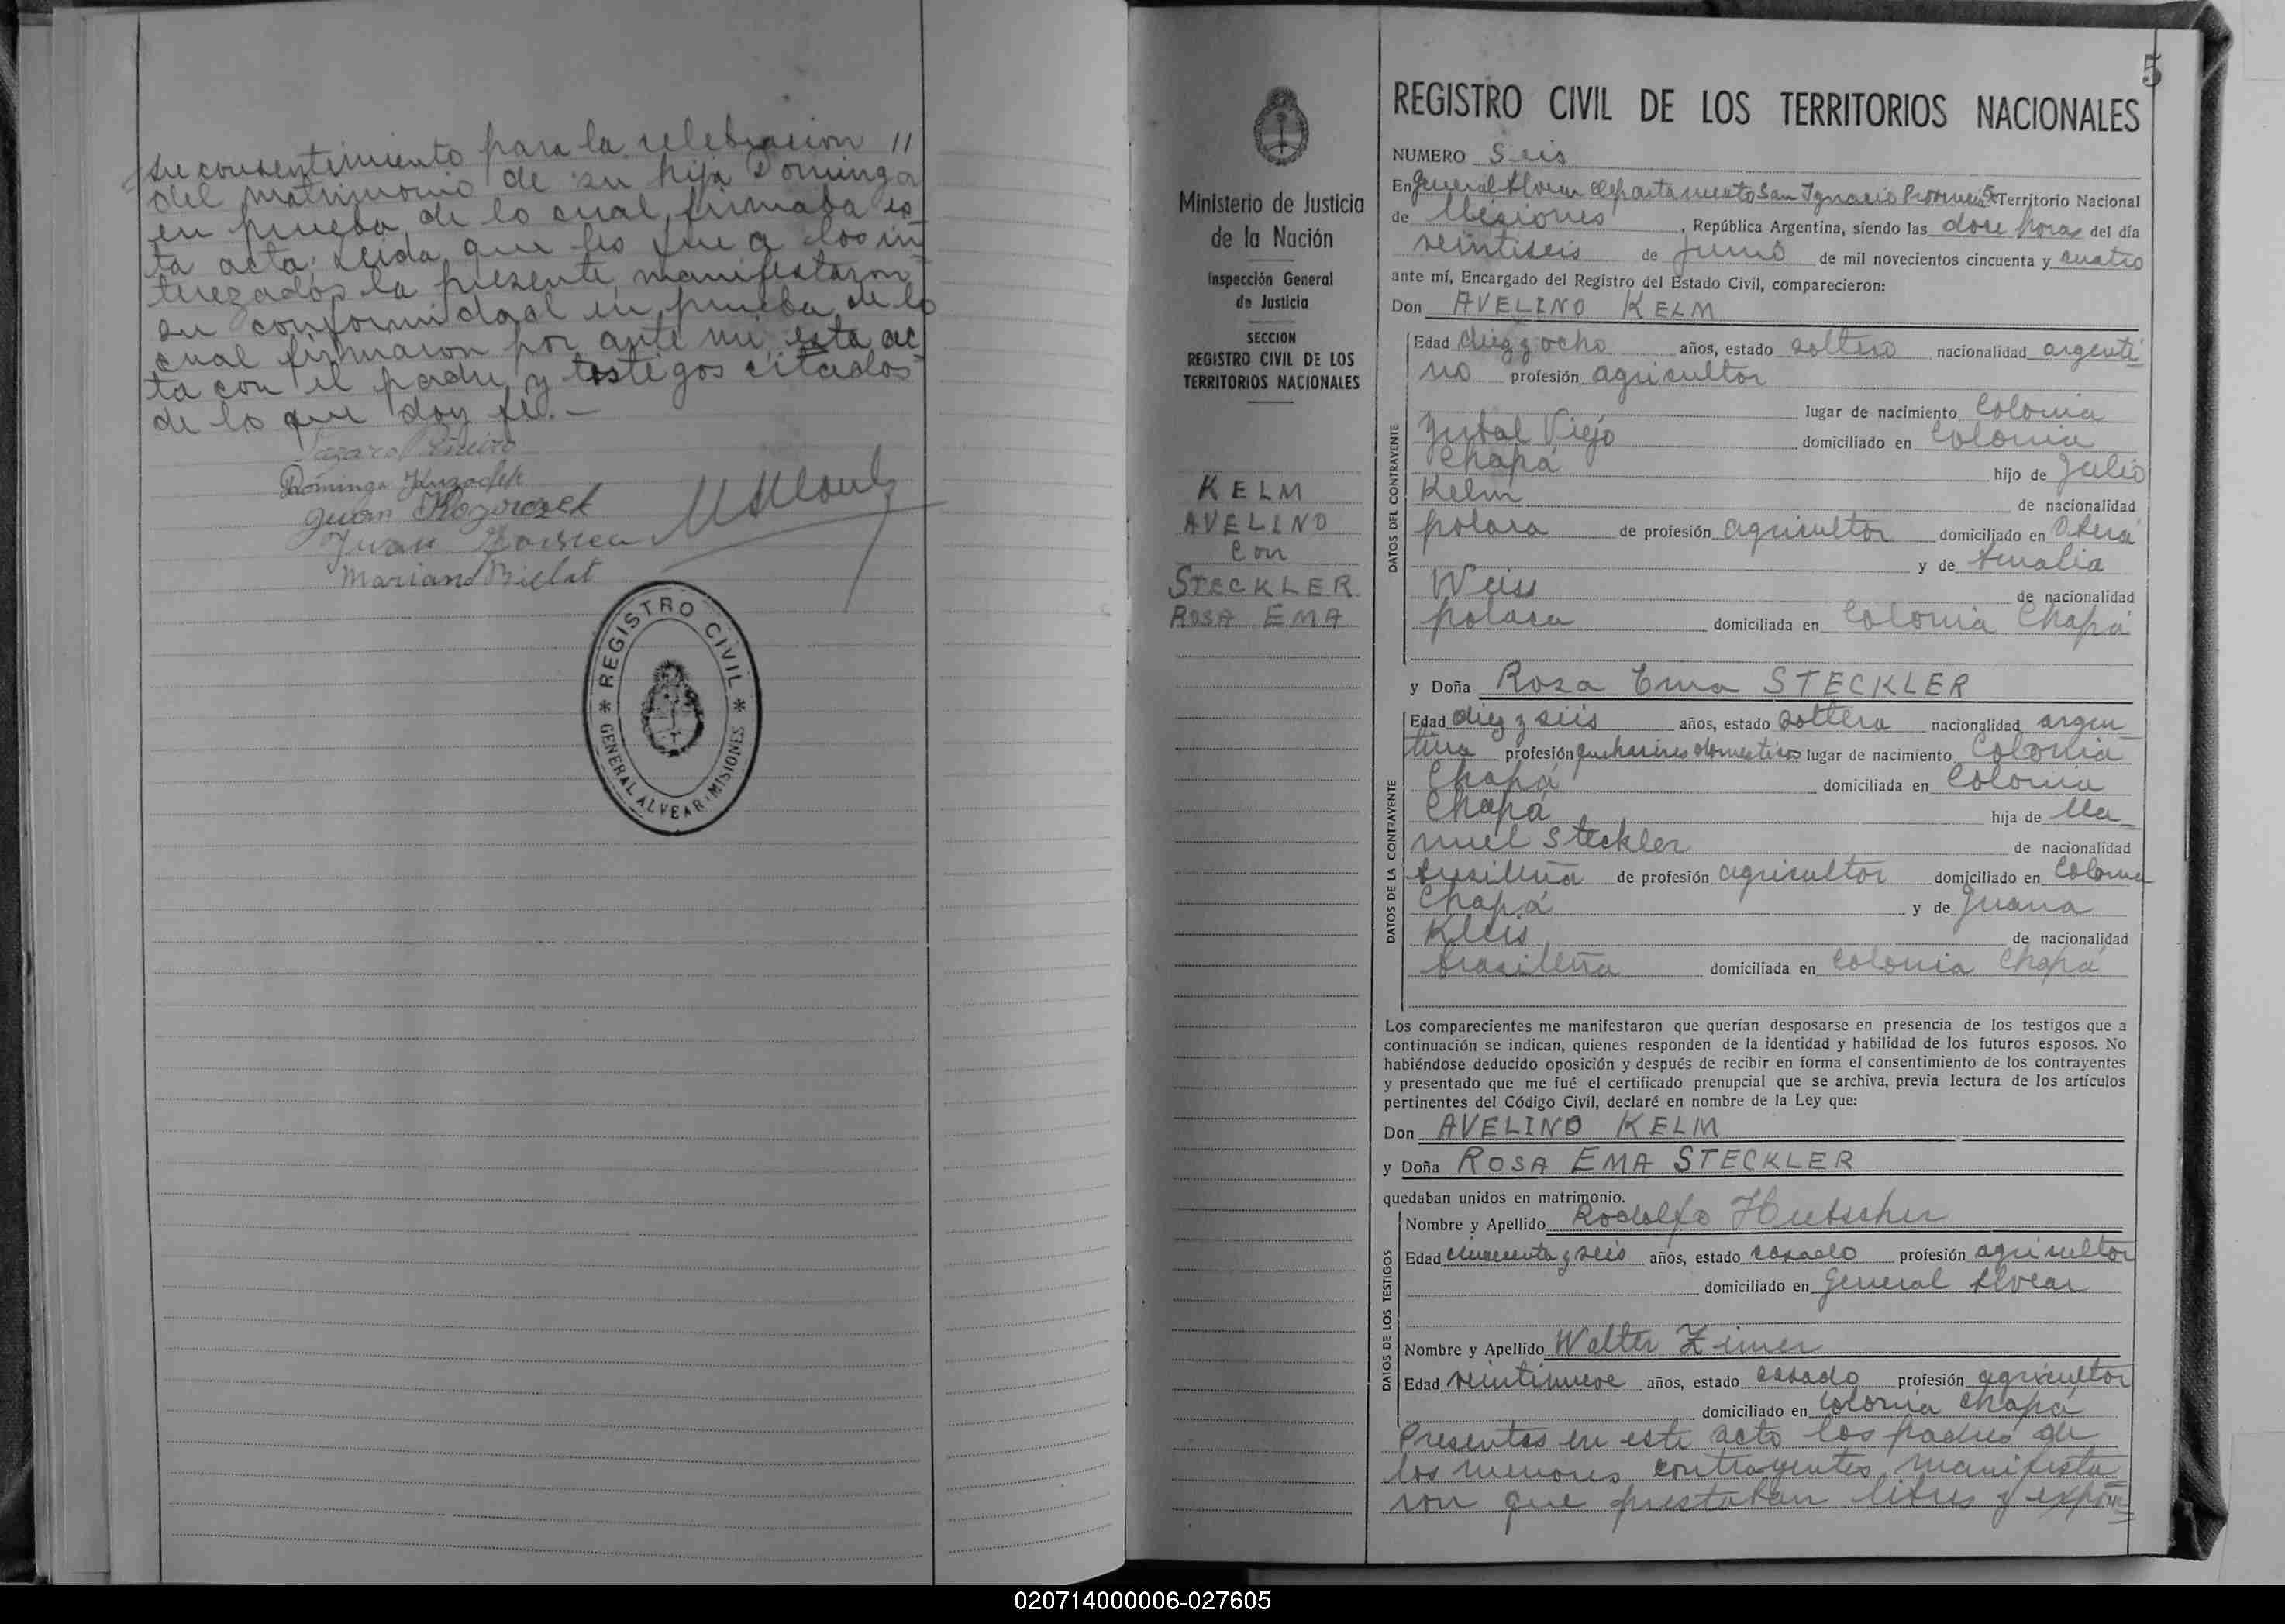 su consentimiento para la celebracion //
del matrimonio de su hija Dominga
en prueba de lo cual firmaba es
ta acta. Leida que les fue a los in
terezados la presente, manifestaron
su conformidad en prueba de lo
cual firmaron por ante mi esta ac
ta con el padre y testigos citados
de lo que doy fé.-
Dominga
Juan
Juan
Mariano
REGISTRO CIVIL
GENERAL ALVEAR-MISIONES
Ministerio de Justicia
de la Nación
Inspección General
de Justicia
SECCION
REGISTRO CIVIL DE LOS
TERRITORIOS NACIONALES
KELM
AVELINO
Con
STECKLER
ROSA EMA
5
REGISTRO CIVIL DE LOS TERRITORIOS NACIONALES
NUMERO Seis
En General Alvear departamento San Ignacio Territorio Nacional
de Misiones, República Argentina, siendo las doce horas del día
veintiseis de Junio de mil novecientos cincuenta y cuatro
ante mí, Encargado del Registro del Estado Civil, comparecieron:
Don AVELINO KELM
DATOS DEL CONTRAYENTE
Edad diez y ocho años, estado soltero nacionalidad argenti
no profesión agricultor
lugar de nacimiento Colonia
Yerbal Viejo domiciliado en Colonia
Chapá hijo de Julio
Kelm de nacionalidad
polaca de profesión agricultor domiciliado en Oberá
y de Amalia
Weiss de nacionalidad
polaca domiciliada en Colonia Chapá
y Doña Rosa Ema STECKLER
DATOS DE LA CONTRAYENTE
Edad diez y seis años, estado soltera nacionalidad argen
tina profesión quehaceres domesticos lugar de nacimiento Colonia
Chapá domiciliada en Colonia
Chapá hija de Ma_
nuel Steckler de nacionalidad
brasileña de profesión agricultor domiciliado en Colonia
Chapá y de Juana
Kleis de nacionalidad
brasileña domiciliada en Colonia Chapá
Los comparecientes me manifestaron que querían desposarse en presencia de los testigos que a
continuación se indican, quienes responden de la identidad y habilidad de los futuros esposos. No
habiéndose deducido oposición y después de recibir en forma el consentimiento de los contrayentes
y presentado que me fué el certificado prenupcial que se archiva, previa lectura de los artículos
pertinentes del Código Civil, declaré en nombre de la Ley que:
Don AVELINO KELM
y Doña ROSA EMA STECKLER
quedaban unidos en matrimonio.
DATOS DE LOS TESTIGOS
Nombre y Apellido Rodolfo
Edad cincuenta y seis años, estado casado profesión agricultor
domiciliado en General Alvear
Nombre y Apellido Walter Zimer
Edad veintinueve años, estado casado profesión agricultor
domiciliado en Colonia Chapá
Presentes en este acto los padres de
los menores contrayentes, manifesta
ron que prestaban libres y expon
020714000006-027605